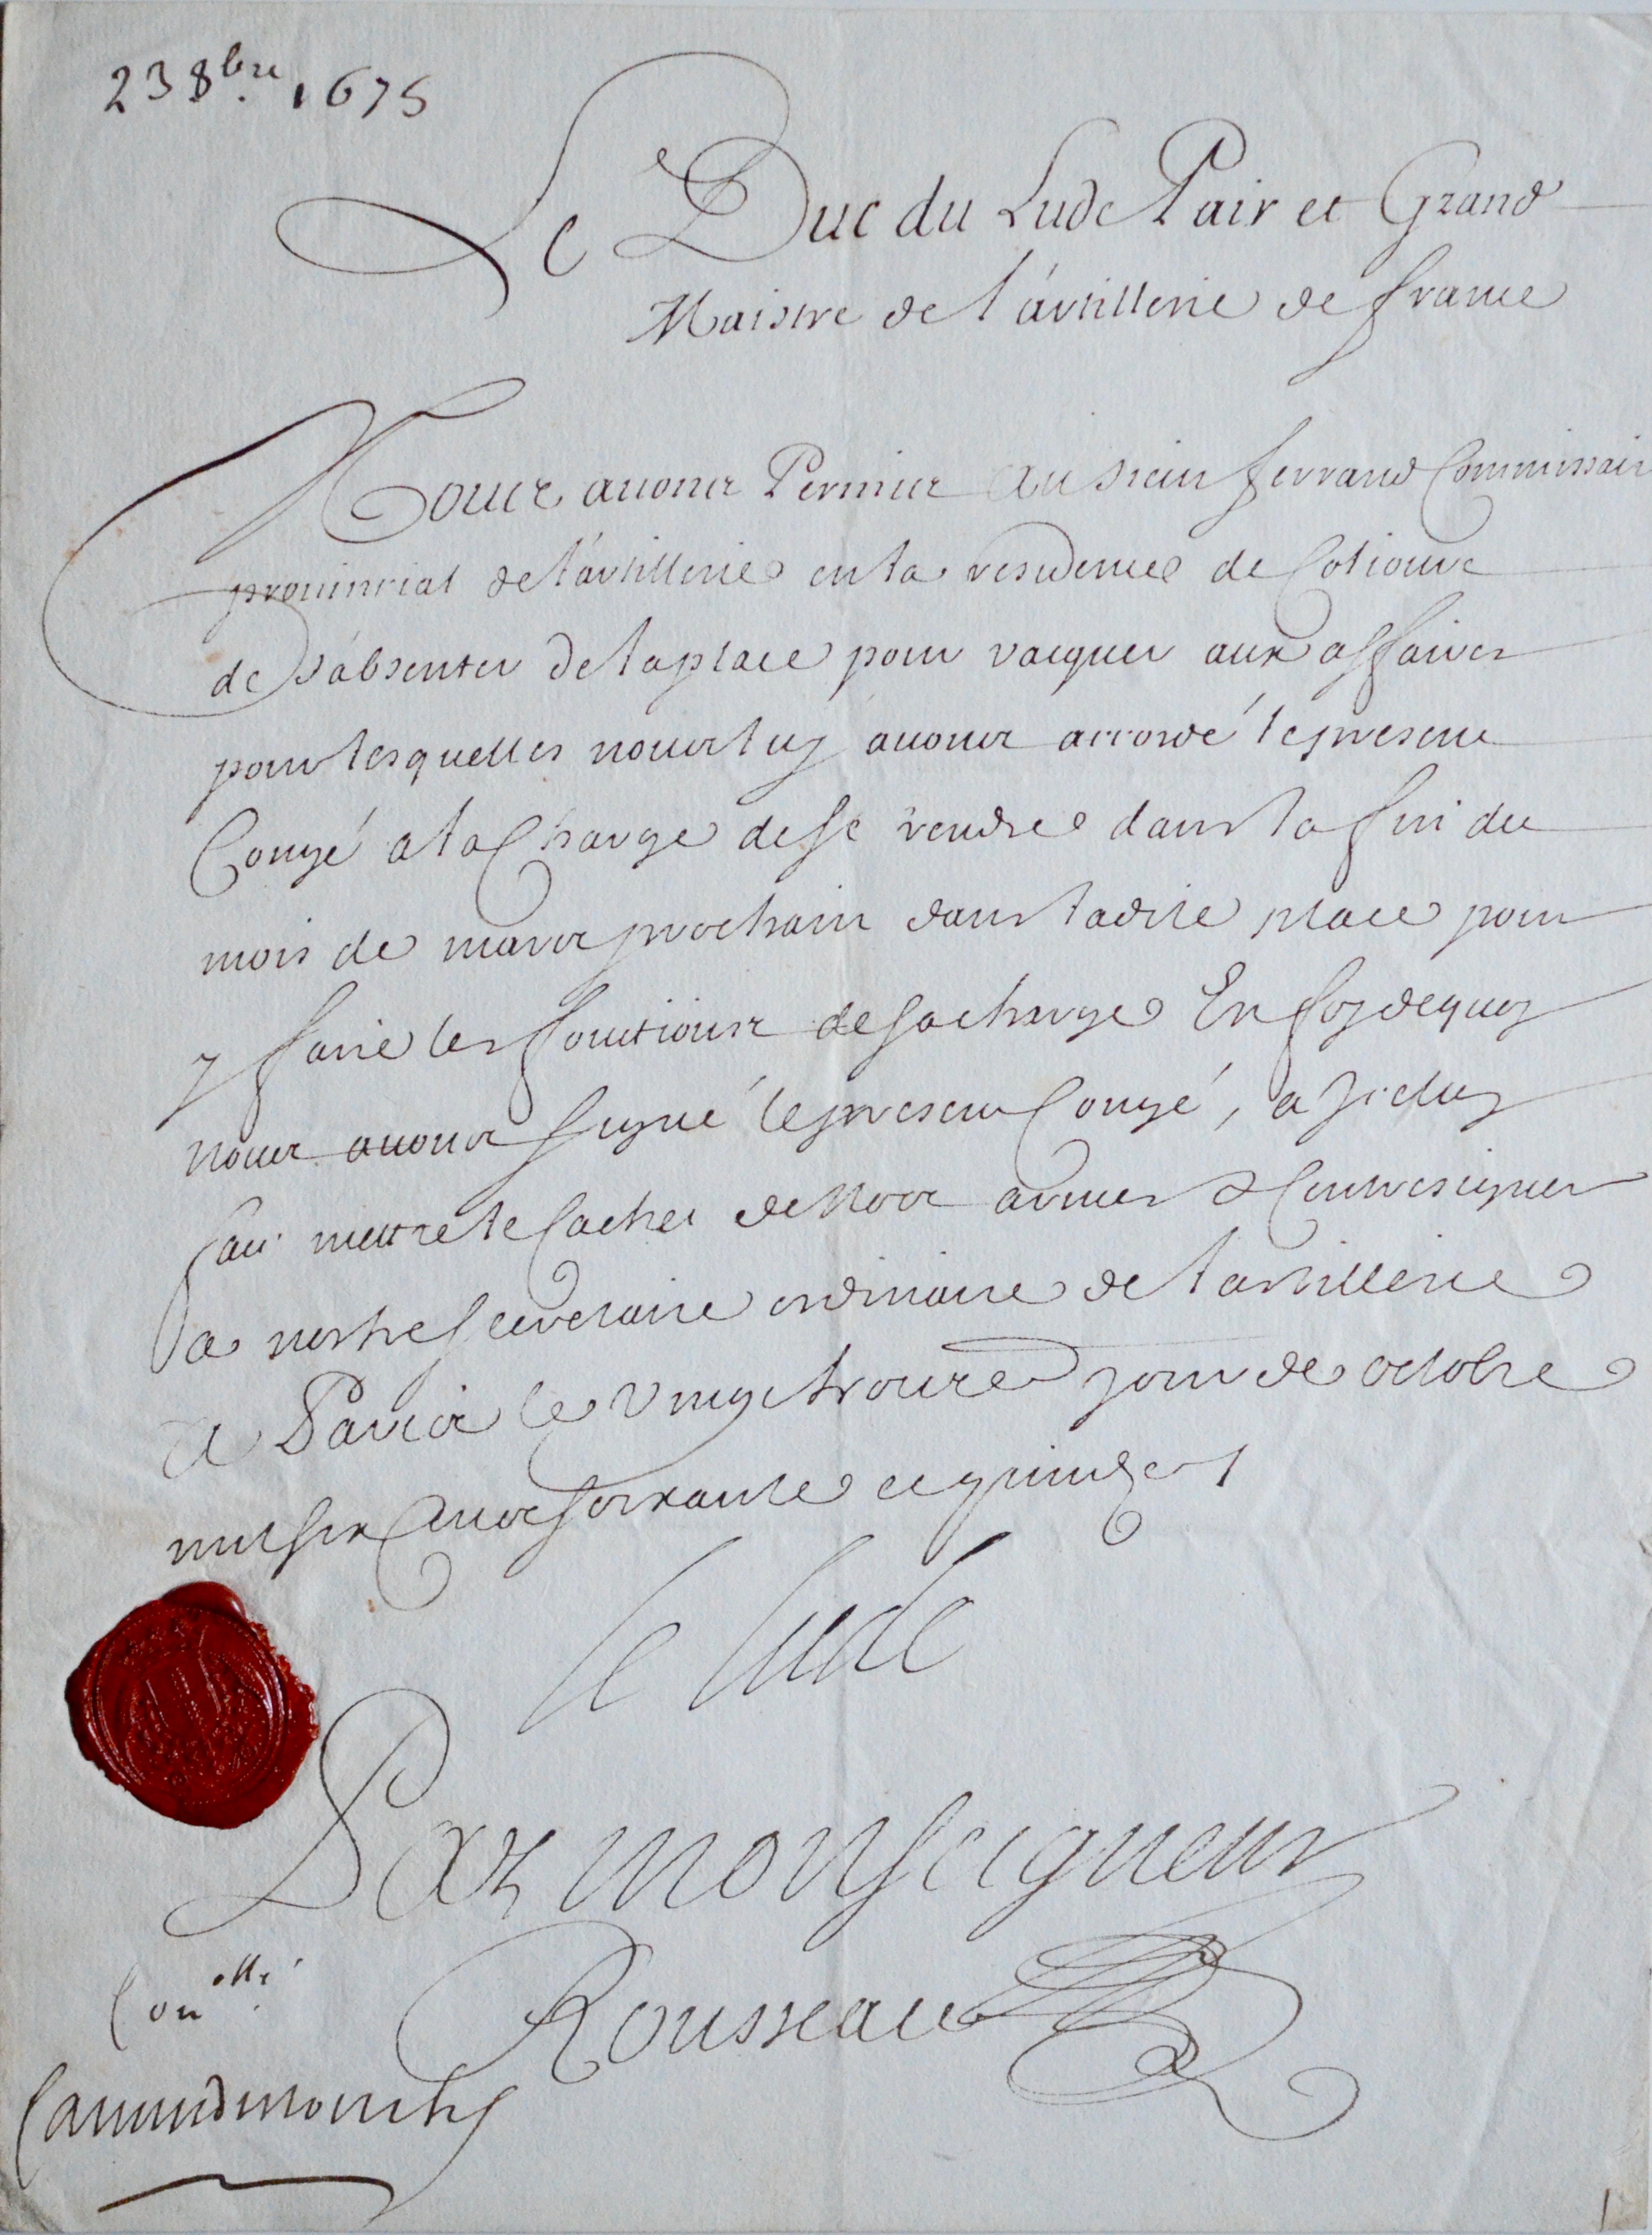 23 8bre 1675
Le Duc du Lude Pair et Grand
Maistre de l'artillerie de france
Nous auons Permis au sieur ferrand Commissaire
prouincial de l'artillerie en la residence de Colioure
de s'absenter de la place pour vacquer aux affaires
pour lesquelles nous luy auons accordé le present
Congé a la Charge de se rendre dans la fin du
mois de mars prochain dans ladite place pour
y faire les fonctions de sa charge En foy de quoy
nous auons signé le present Congé, a Iceluy
fait mettre le Cachet de Nos armes & Contresigner
a nostre secretaire ordinaire de l'artillerie
A Paris le vingt troise jour de octobre
mil six Cens soixante et quinze
le lude
Par monseigneur
Rousseau
Con.olle